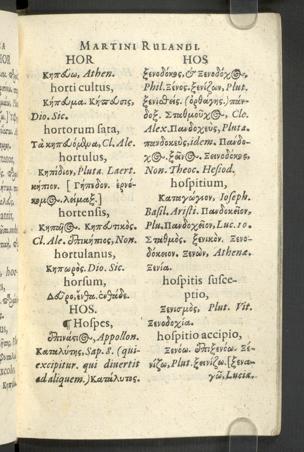 MARTINI RULANDI.
HOR
Κηπεύω, Athen.
horti cultus,
Κήπευμα. Κήπευσις,
Dio. Sic.
hortorum sata,
Τὰ κηπευόμενα, Cl. Ale.
hortulus,
Κηπίδιον, Pluta. Laert.
κήπιον. [Γήπεδον.
hortensis,
Κηπαῖος. Κηπευτικὸς.
Cl. Ale. ἐπικήπιος, Non.
hortulanus,
Κηπωρὸς. Dio. Sic.
horsum,
Δεῦρο, ἔνθα. ἐνθάδε.
HOS.
¶ Hospes,
Appollon.
Καταλύτης, Sap. 8. (qui
excipitur. qui divertit
ad aliquem.) Κατάλυτος.
HOS
ξενοδόκος, & Ξενοδόχος.
Phil. Ξένος. ξενίζων, Plut.
ξενισθείς. (ὀρφάνης.) πάν-
δοξ. Σταθμοῦχος, Cle.
Alex. Πανδοχεὺς, Pluta.
πανδοκεὺς, idem. Πανδο-
χος. ξεῖνος. Ξεινοδόκος,
Non. Theoc. Hesiod.
hospitium,
Καταγώγιον, Ioseph.
Basil. Aristi. Πανδοκεῖον,
Plu. Πανδοχεῖον, Luc. 10.
Σταθμὸς. ξενικὸν. Ξενο-
δόκειον. Ξενὼν, Athenæ.
Ξενία.
hospitis susce-
ptio,
Ξενισμὸς, Plut. Vit.
Ξενοδοχία.
hospitio accipio,
Ξενόω. ἐπιξενόω. Ξε-
νίζω, Plut. ξεινίζω. [ξενα-
γῶ, Lucia.